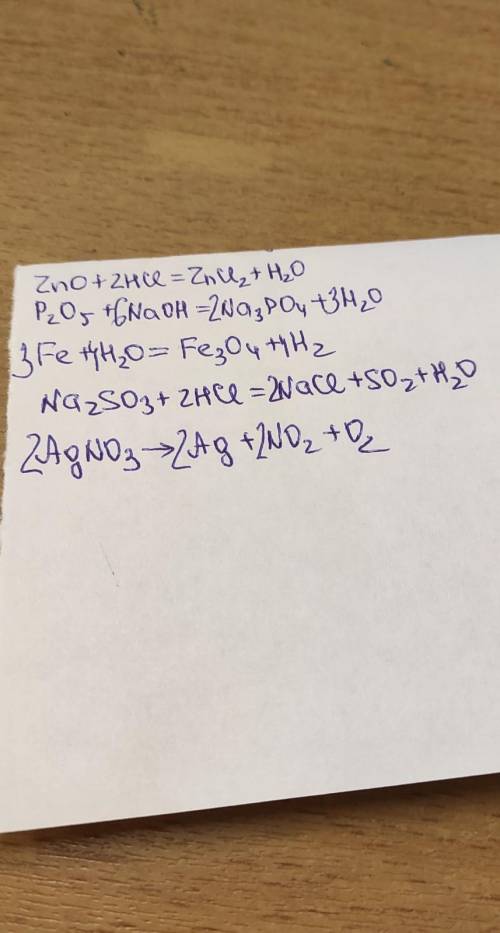 ZnO + 2HCl = ZnCl₂ + H₂O
P₂O₅ + 6NaOH = 2Na₃PO₄ + 3H₂O
3Fe + 4H₂O = Fe₃O₄ + 4H₂
Na₂SO₃ + 2HCl = 2NaCl + SO₂ + H₂O
2AgNO₃ → 2Ag + 2NO₂ + O₂